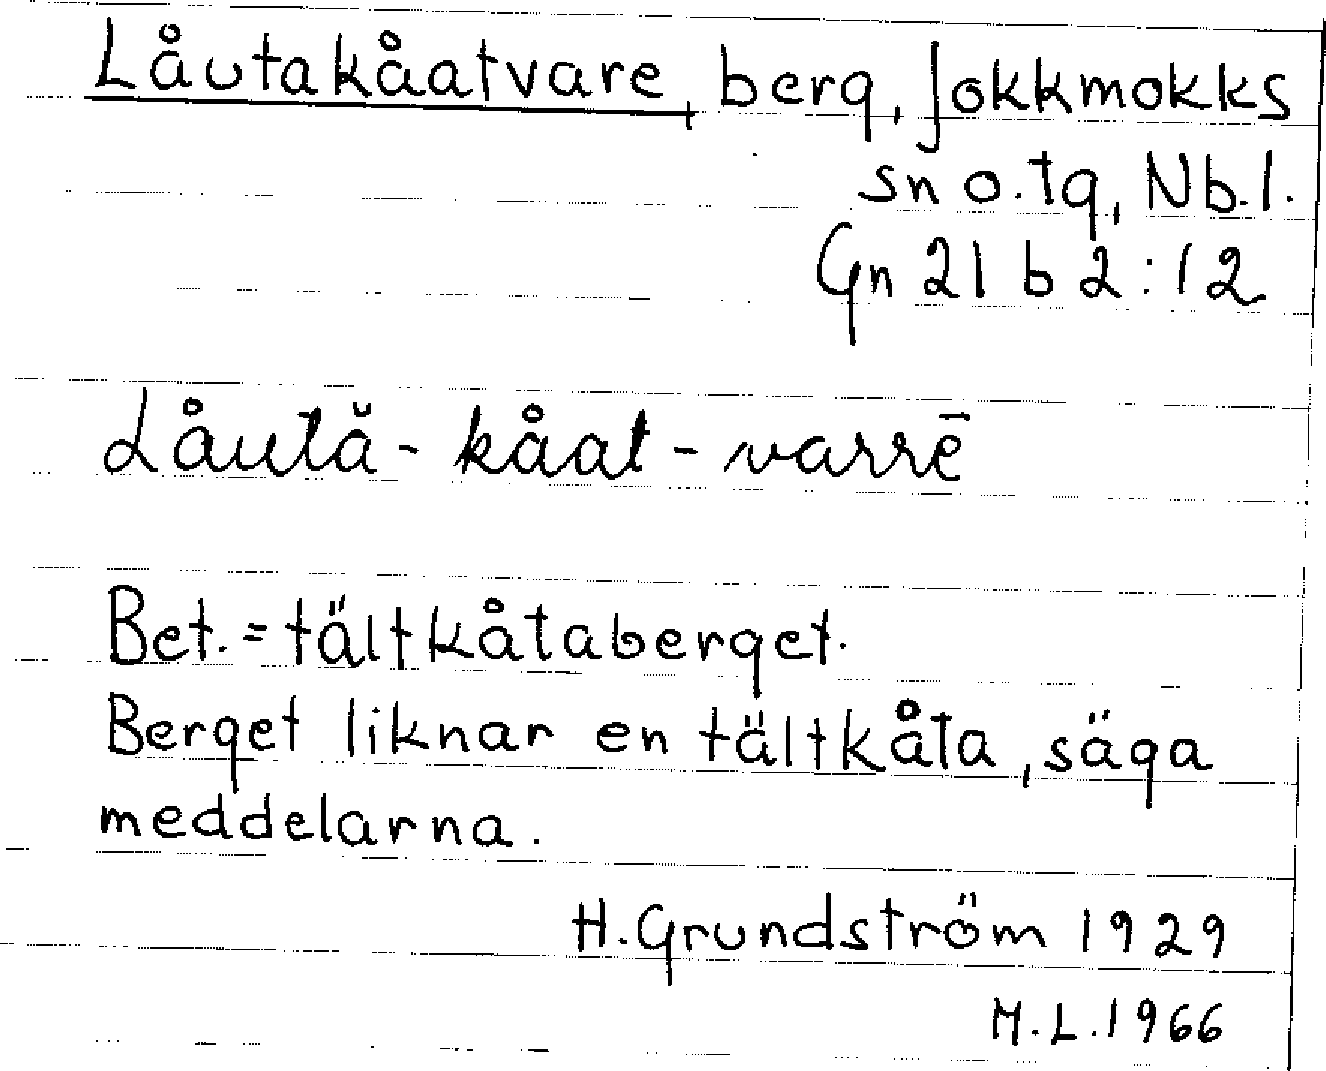 Låutakåatvare, berg, Jokkmokks
sn o. tg, Nb.l.
Gn 21 b 2:12
Låută - kåat - varrē
Bet. = tältkåtaberget.
Berget liknar en tältkåta, säga
meddelarna.
H. Grundström 1929
M.L. 1966